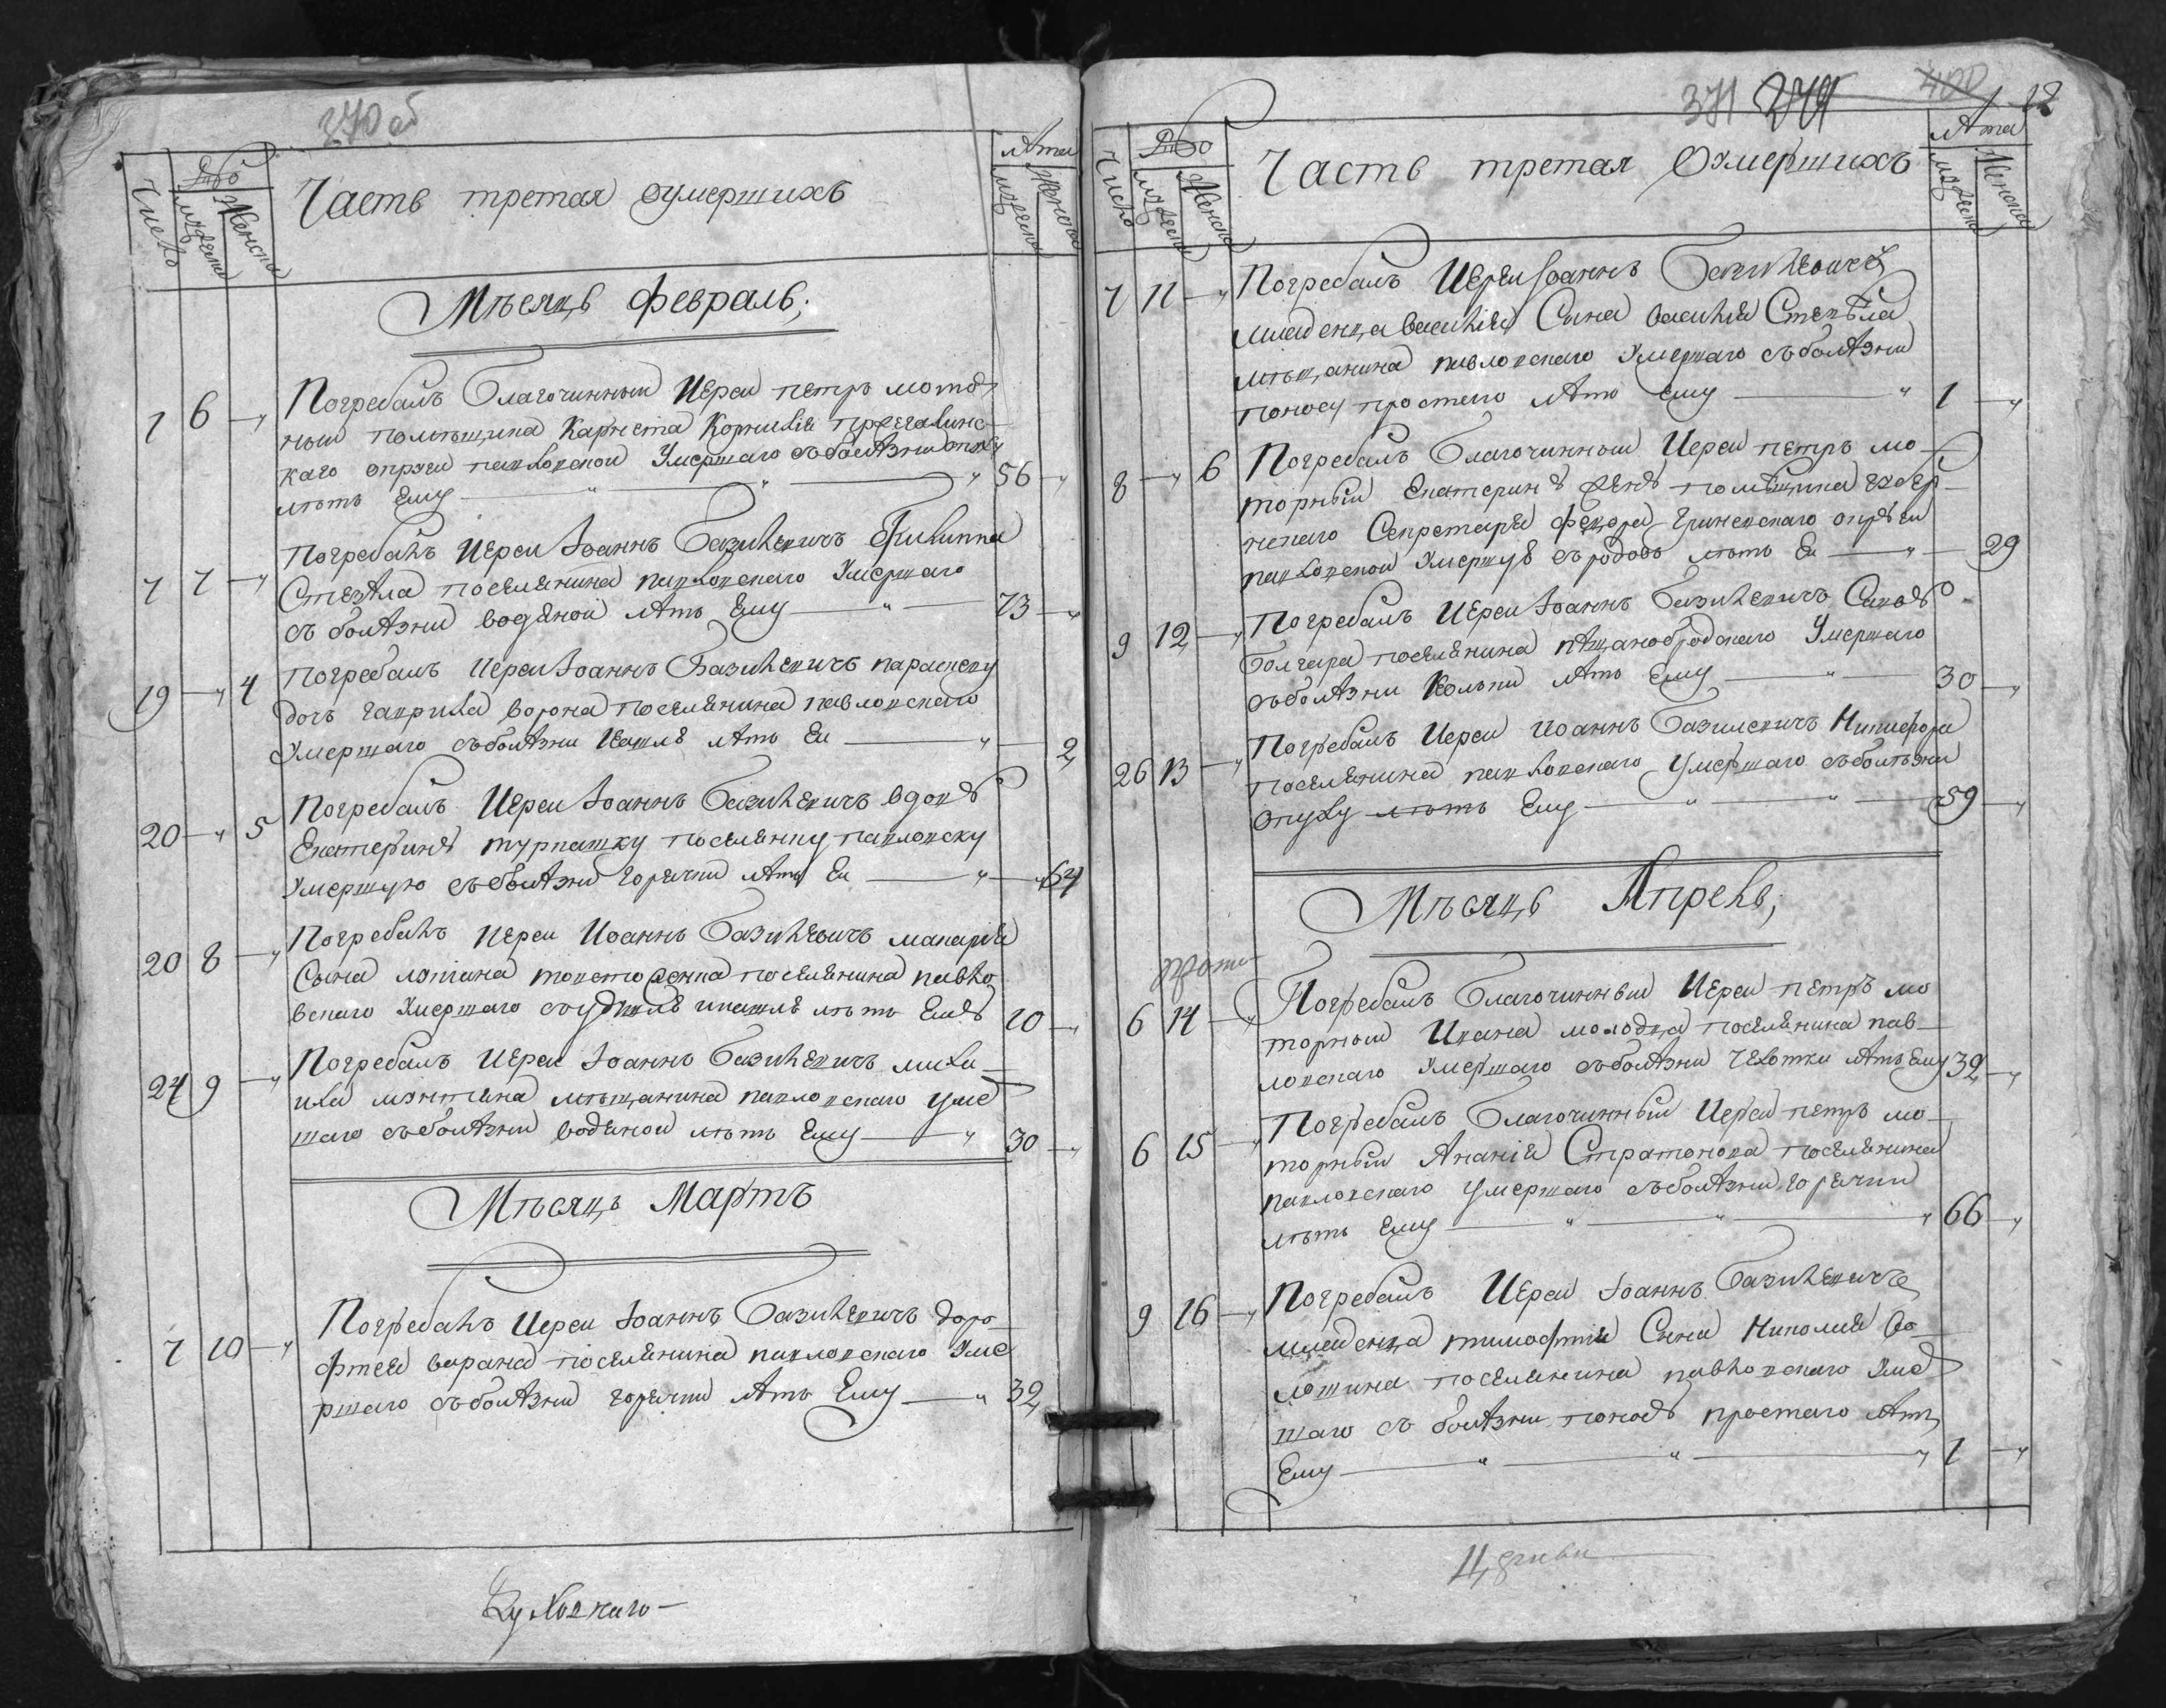 270 об
Число Счетъ Мужеска Женска
Часть третая о умершихъ
Лѣта Мужеска Женска
Мѣсяцъ февраль;
7 6 — Погребалъ Благочинный Иереи петръ мотор
ный помѣщика Карнета Корнилія
каго округи павловской Умершаго съболѣзни опух
лѣтъ Ему — 56 —
7 7 — Погребалъ Иереи Іоаннъ Базилевичъ Филиппа
поселянина павловскаго Умершаго
съ болѣзни водяной лѣтъ Ему — 73 —
19 — 4 Погребалъ Иереи Іоаннъ Базилевичъ параскеву
дочь гаврила ворона поселянина павловскаго
Умершаго съболѣзни Кашля лѣтъ Еи — 2
20 — 5 Погребалъ Иереи Іоаннъ Базилевичъ вдову
Екатерину поселянку павловску
Умершую съболѣзни горячки лѣтъ Еи — 64
20 8 — Погребалъ Иереи Иоаннъ Базилевичъ макарія
Сына поселянина павло
вскаго Умершаго икашля лѣтъ Ему 10 —
24 9 — Погребалъ Иереи Іоаннъ Базилевичъ миха
ила мѣщанина павловскаго Уме
шаго съболѣзни водяной лѣтъ Ему — 30 —
Мѣсяцъ Мартъ
7 10 — Погребалъ Иереи Іоаннъ Базилевичъ доро
фтея барана поселянина павловскаго Уме
ршаго съболѣзни горячки лѣтъ Ему — 32
371 400 12
Число Мужеска Женска
Часть третая Оумершихъ
Лѣта Мужеска Женска
7 11 — Погребалъ Иереи Іоаннъ Базилевичъ
младенца василія Сына василія
мѣщанина павловскаго Умершаго съболѣзни
поносу простаго лѣтъ Ему — 1 —
8 — 6 Погребалъ Благочинный Иереи петръ мо
торный Екатерину жену помѣщика губер
нскаго Секретаря федора округи
павловской Умершую съродовъ лѣтъ Еи — 29
9 12 — Погребалъ Иереи Іоаннъ Базилевичъ Савву
Болгара поселянина пѣщанобродскаго Умершаго
съболѣзни Кольки лѣтъ Ему — 30 —
26 13 — Погребалъ Иереи Иоаннъ Базилевичъ Никифора
поселянина павловскаго Умершаго съболѣзни
опуху лѣтъ Ему — 59 —
Мѣсяцъ Апрель;
6 14 — Погребалъ Благочинный Иереи петръ мо
торный Ивана молодца поселянина пав
ловскаго Умершаго съболѣзни чехотки лѣтъ Ему 32 —
6 15 — Погребалъ Благочинный Иереи петръ мо
торный Ананія Стратонова поселянина
павловскаго Умершаго съболѣзни горячки
лѣтъ Ему — 66 —
9 16 — Погребалъ Иереи Іоаннъ Базилевичъ
младенца тимофтія Сына Николая Во
лошина поселянина павловскаго Уме
шаго съ болѣзни поносу простаго лѣтъ
Ему — 1 —